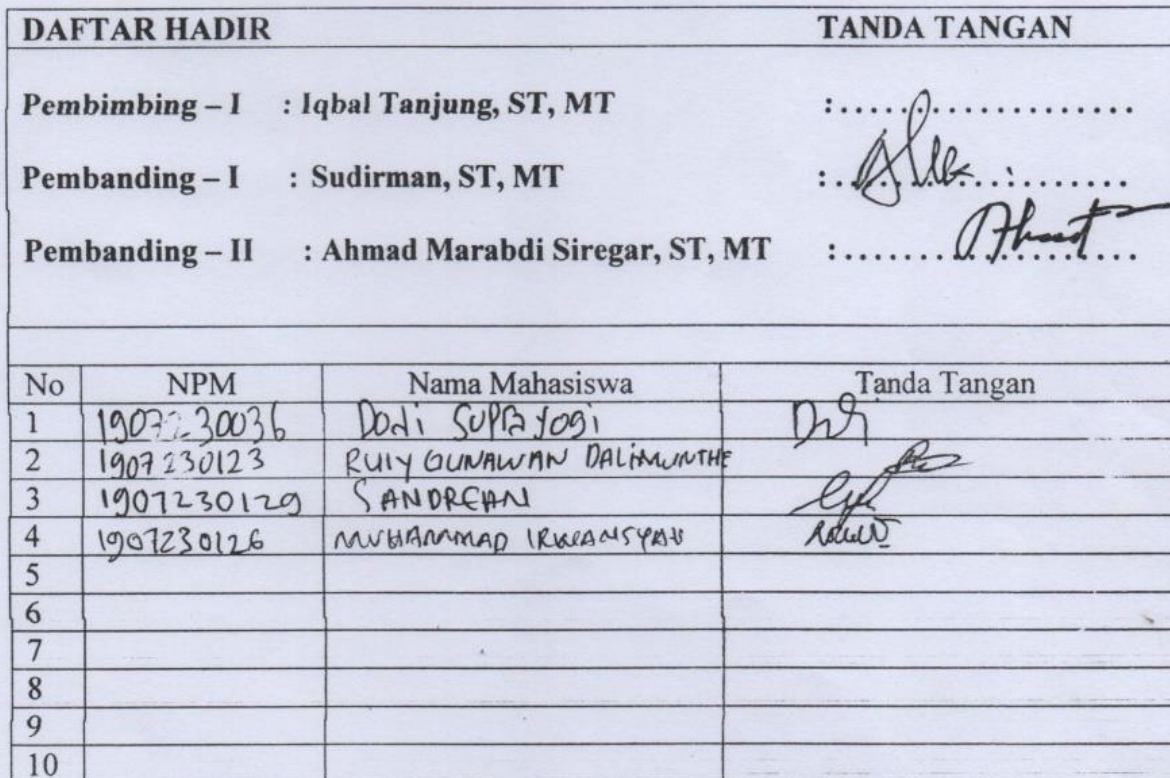 DAFTAR HADIR TANDA TANGAN
Pembimbing – I : Iqbal Tanjung, ST, MT :....................
Pembanding – I : Sudirman, ST, MT :....................
Pembanding – II : Ahmad Marabdi Siregar, ST, MT :....................
No NPM Nama Mahasiswa Tanda Tangan
1 1907230036 Dodi Suprayogi
2 1907230123 RULY GUNAWAN DALIMUNTHE
3 1907230129 SANDREAN
4 1907230126 MUHAMMAD IRWANSYAH
5
6
7
8
9
10